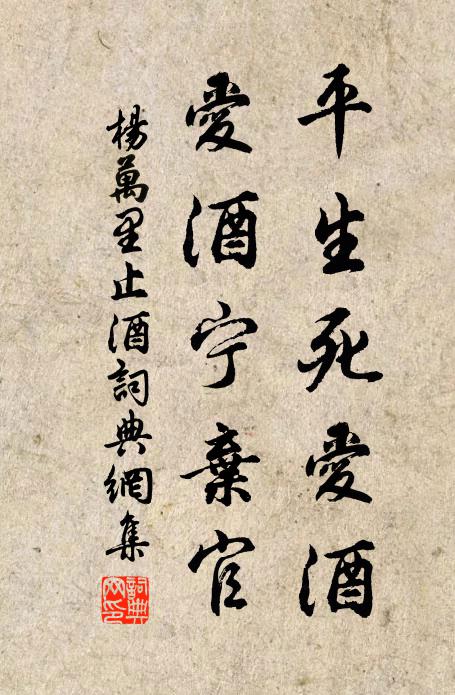 平生死愛酒
愛酒宁棄官
楊萬里止酒詞典網集
詞典网印